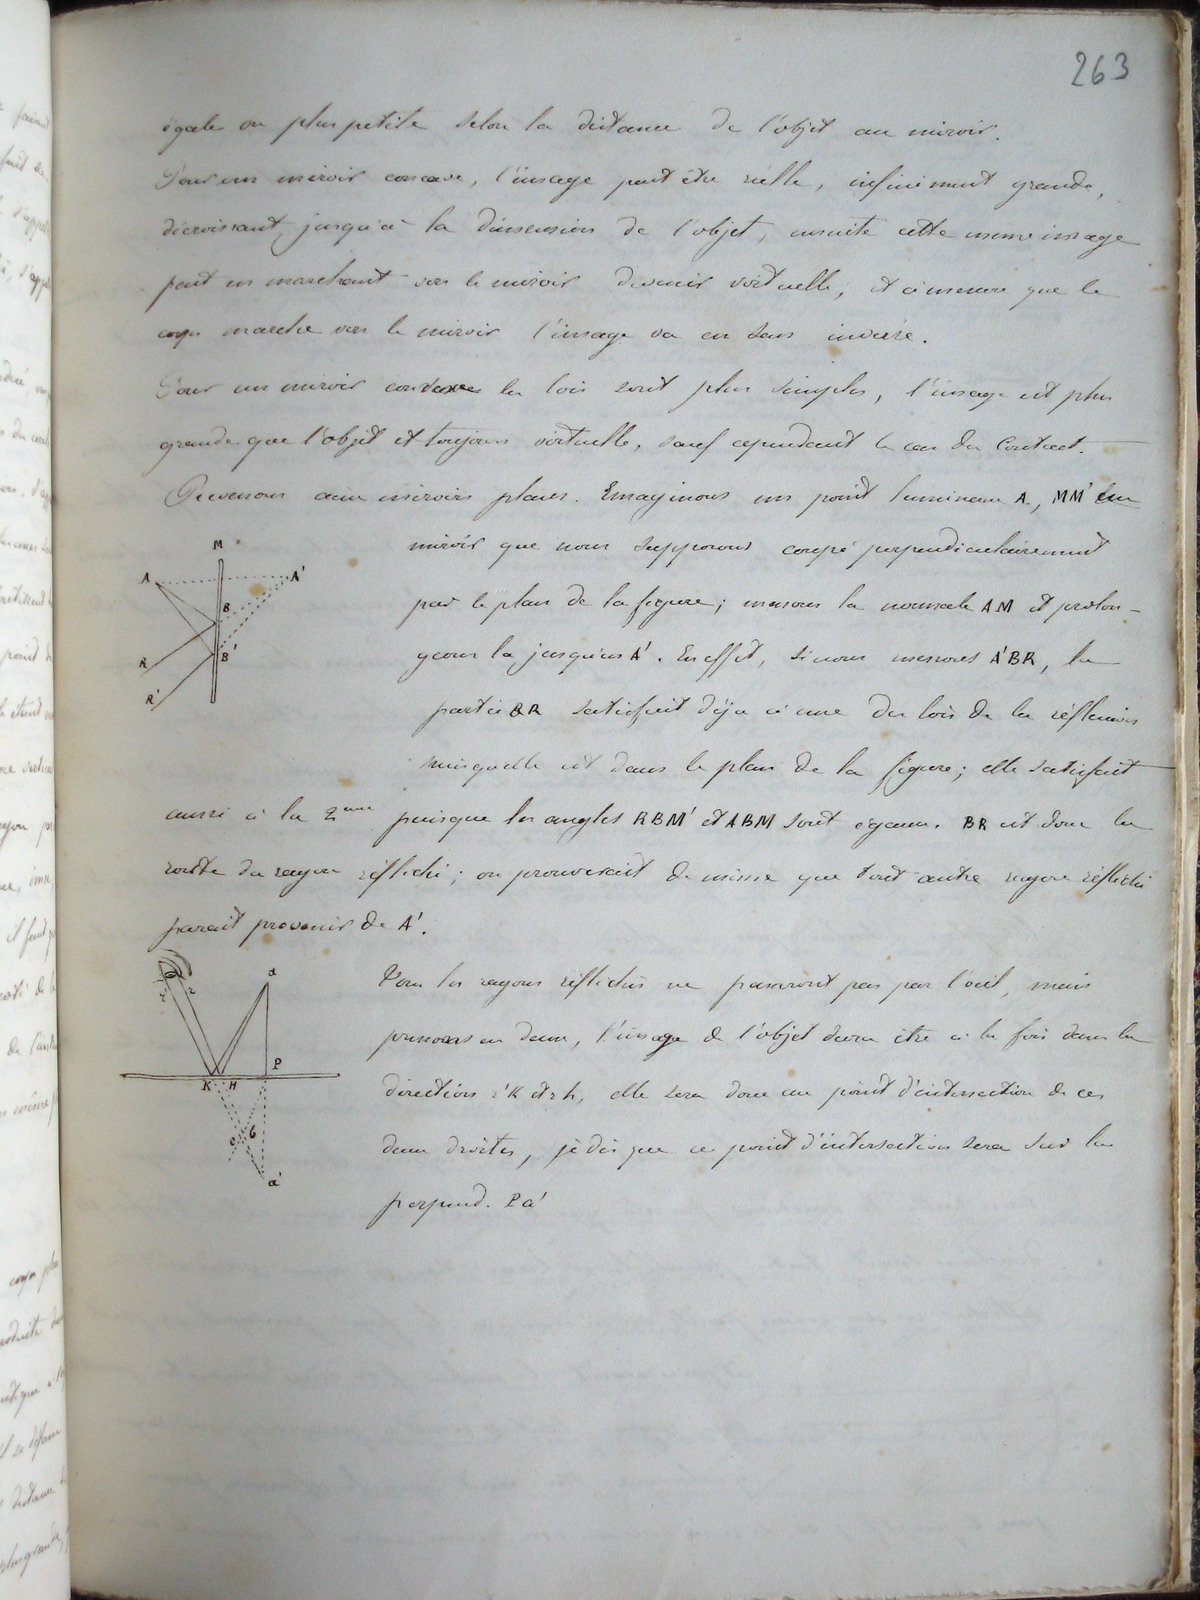 263
égale ou plus petite selon la distance de l'objet au miroir.
Pour un miroir concave, l'image peut être réelle, infiniment grande,
décroissant jusqu'à la dimension de l'objet, ensuite cette même image
peut en marchant vers le miroir devenir virtuelle, et à mesure que le
corps marche vers le miroir l'image va en sens inverse.
Pour un miroir convexe les lois sont plus simples, l'image est plus
grande que l'objet et toujours virtuelle, sauf cependant le cas du Contact.
Revenons aux miroirs plans. Imaginons un point lumineux A, MM' un
miroir que nous supposons coupé perpendiculairement
par le plan de la figure; menons la normale AM et prolon-
geons la jusqu'en A'. En effet, si nous menons A'BR, la
partie BR satisfait déjà à une des lois de la réflexion
puisqu'elle est dans le plan de la figure; elle satisfait
aussi à la 2ème puisque les angles RBM' et ABM sont égaux. BR est donc la
route du rayon réfléchi; on prouverait de même que tout autre rayon réfléchi
parait provenir de A'.
M
A
A'
B
B'
R
R'
Tous les rayons réfléchis ne passeront pas par l'œil, mais
prenons en deux, l'image de l'objet devra être à la fois dans la
direction r'K et rh, elle sera donc au point d'intersection de ces
deux droites, je dis que ce point d'intersection sera sur la
perpend. Pa'
a
P
K H
c
b
a'